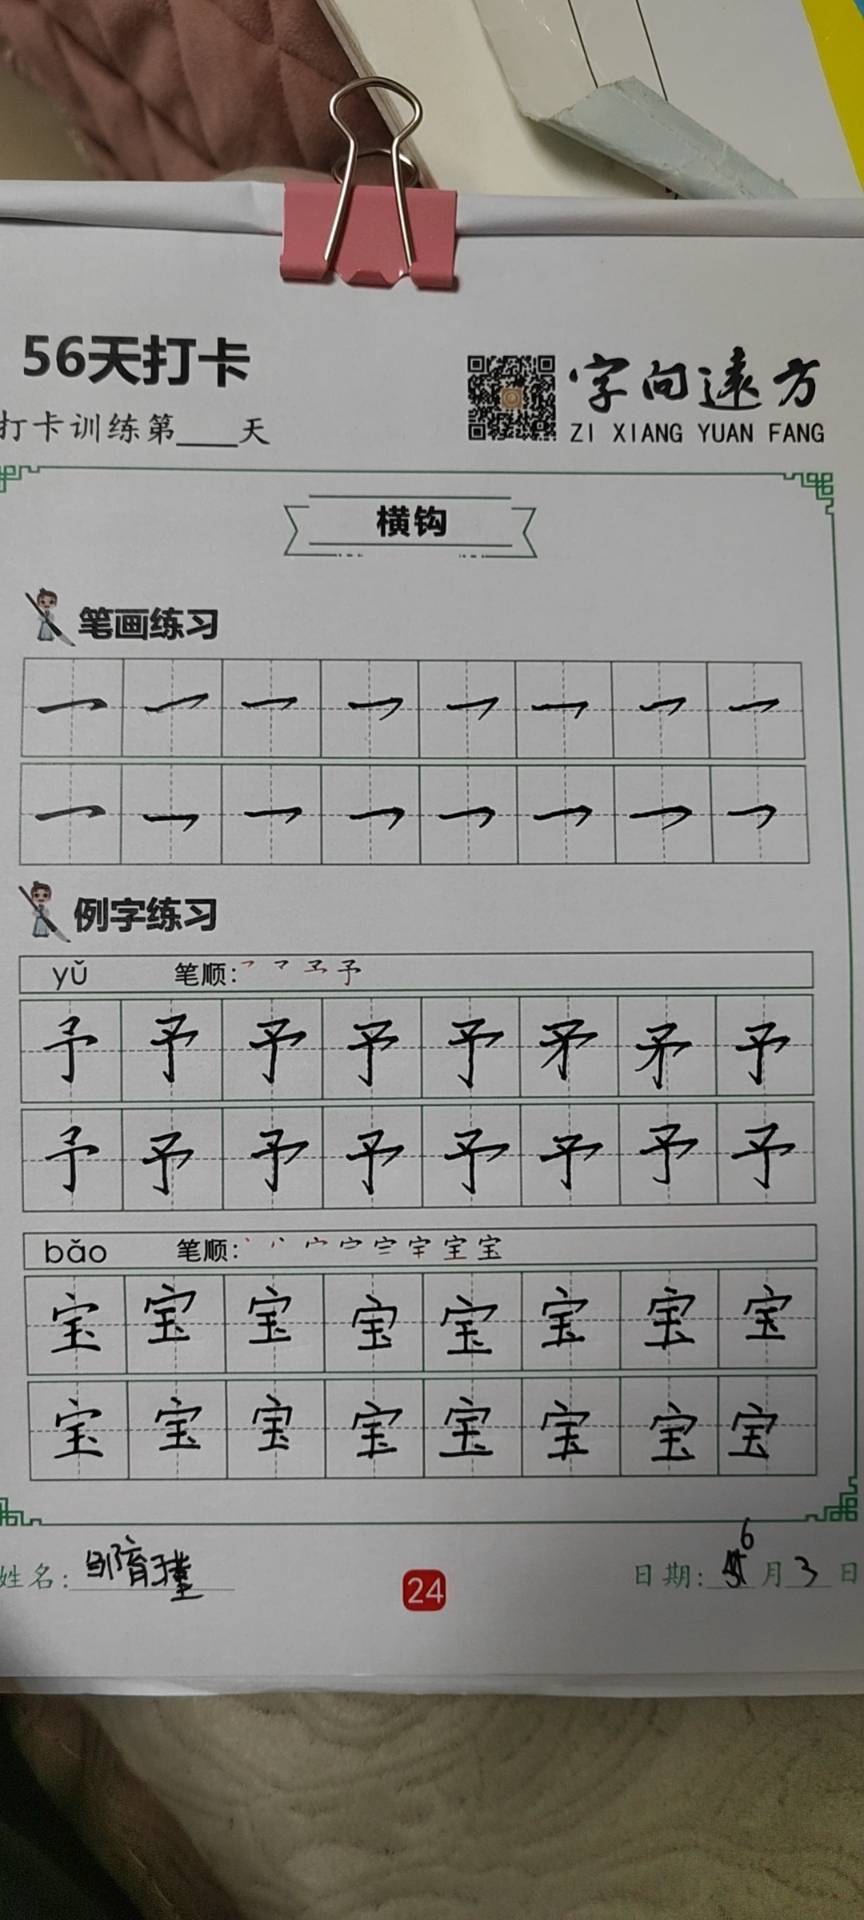 56天打卡
打卡训练第____天
字向遠方
ZI XIANG YUAN FANG
横钩
笔画练习
例字练习
yǔ 笔顺:
予 予 予 予 予 矛 矛 予
予 予 予 予 予 予 予 予
bǎo 笔顺:
宝 宝 宝 宝 宝 宝 宝 宝
宝 宝 宝 宝 宝 宝 宝 宝
姓名:
24
日期: 6 月 3 日